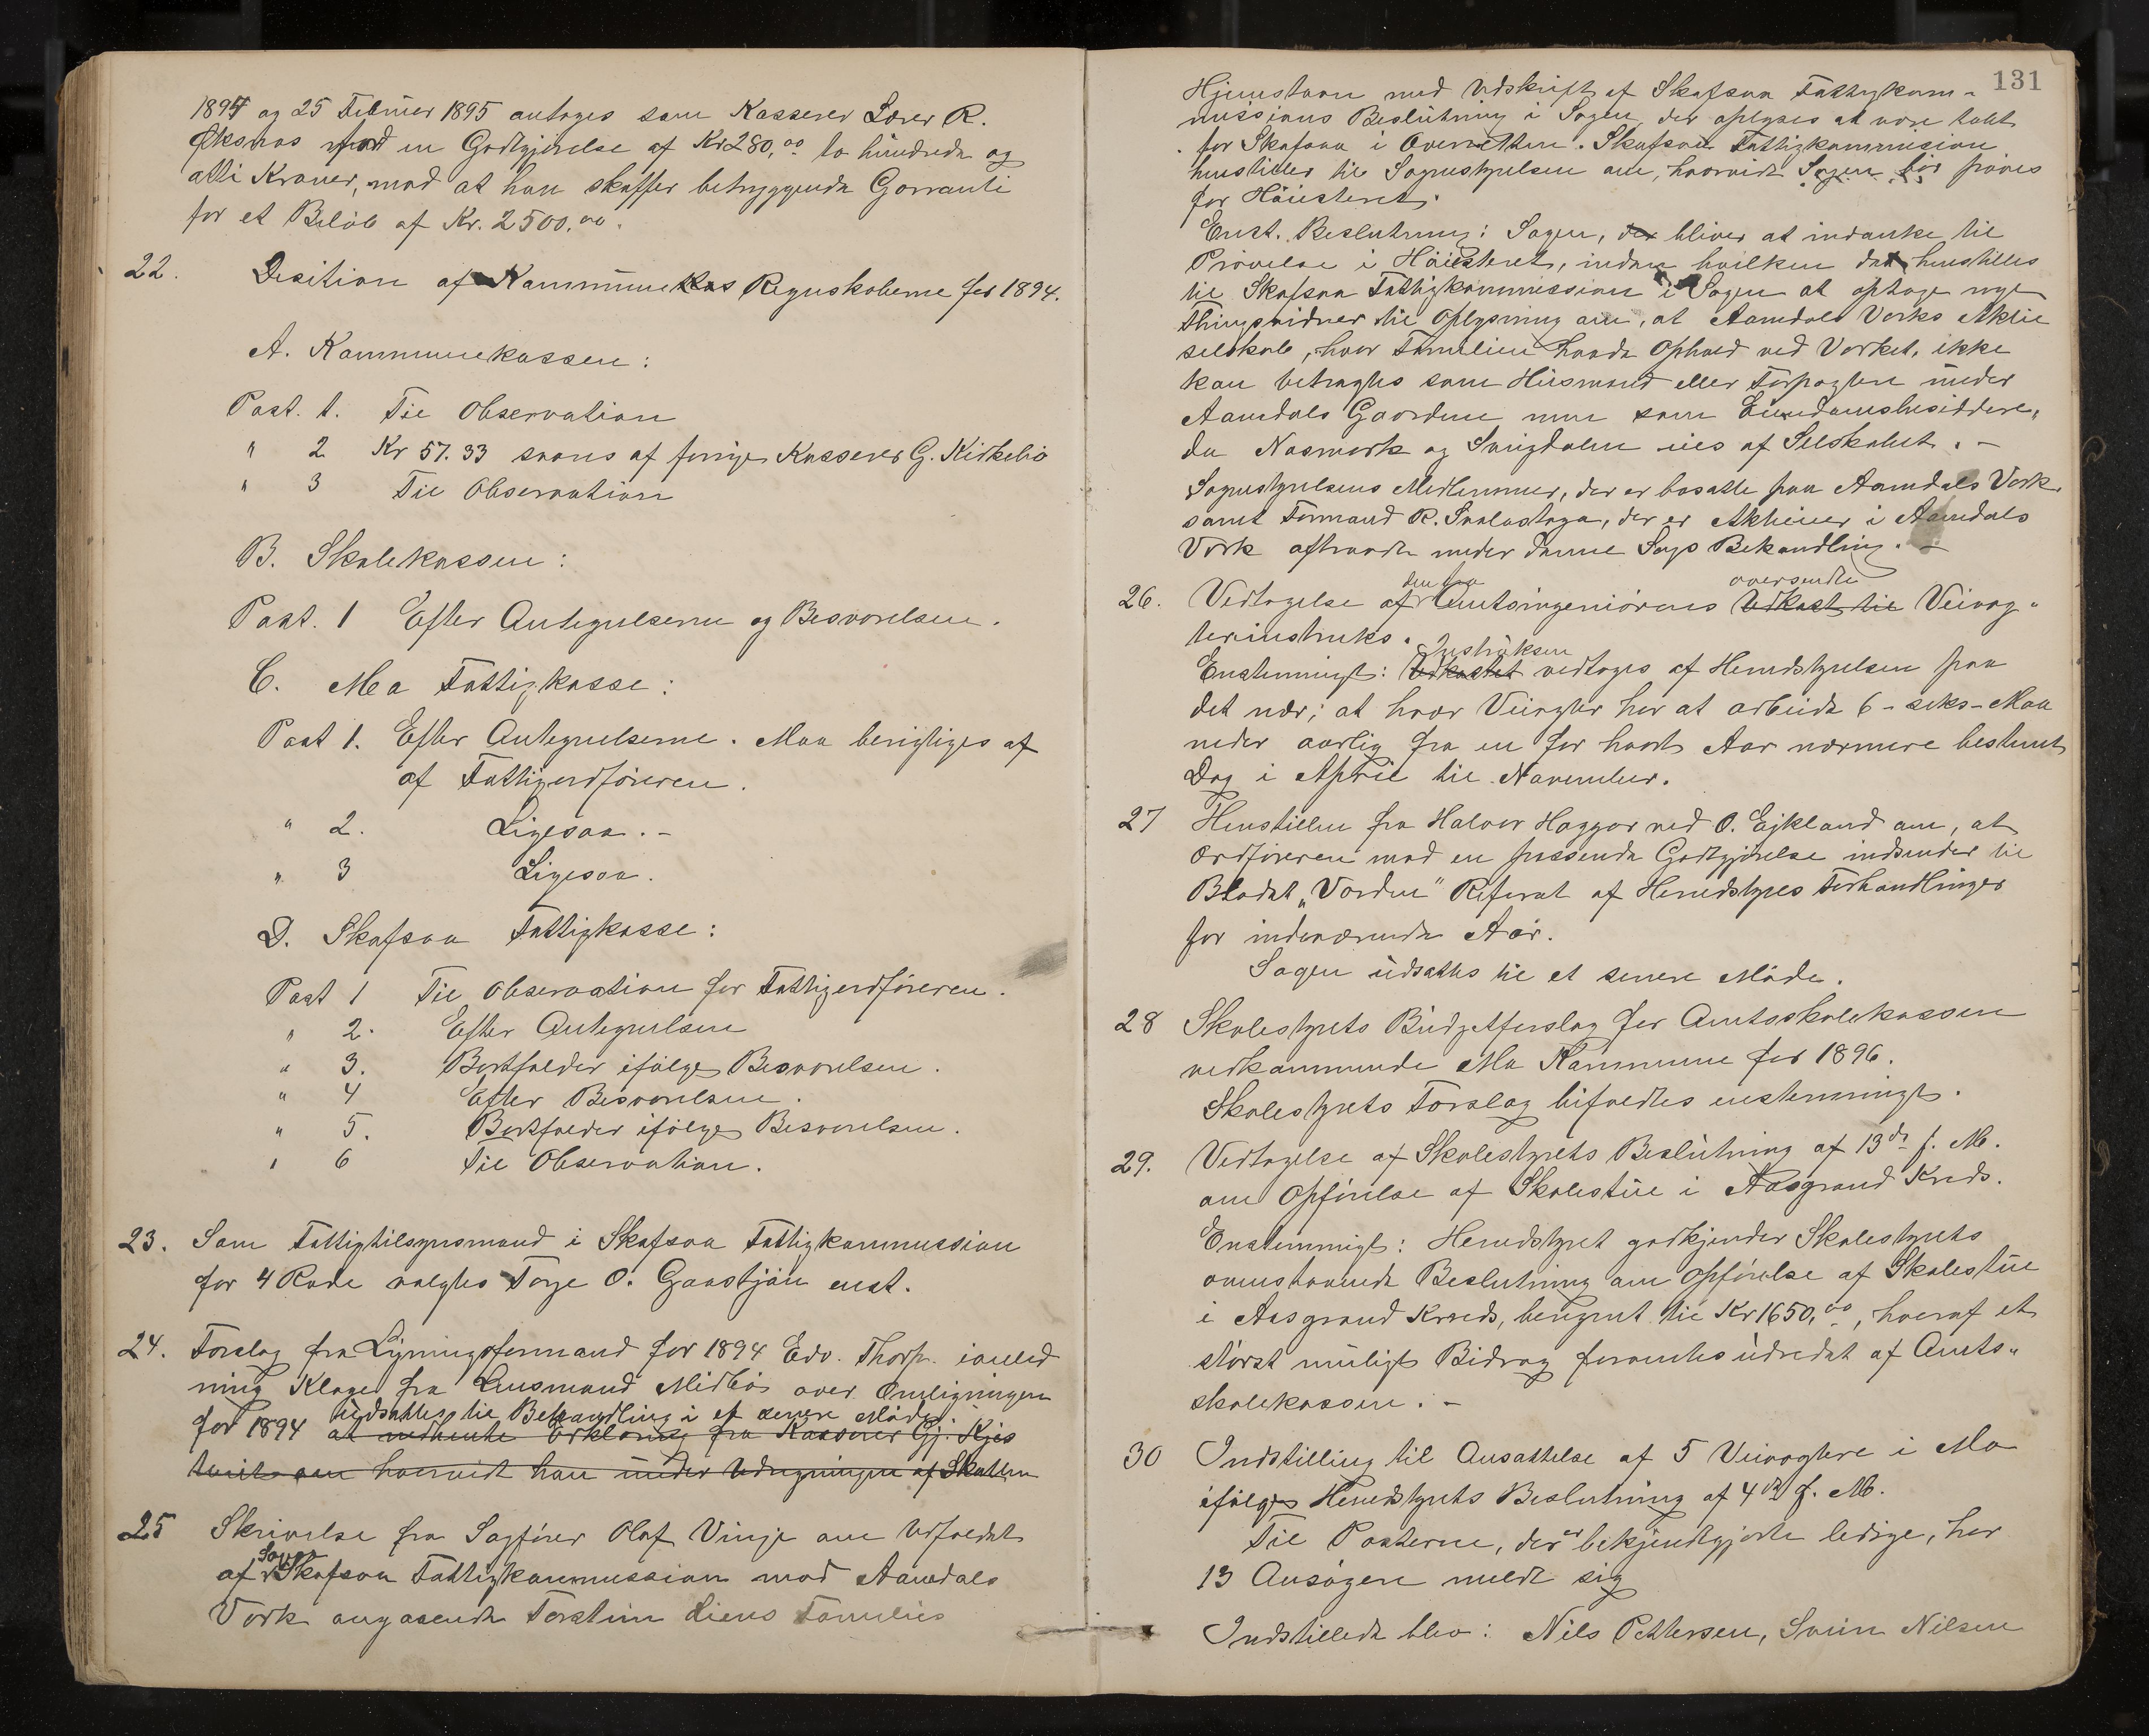 1894 og 25 Februer 1895 antages som Kasserer Lærer R.
Øksnæs mod en Godtgjørelse af Kr 280,00 to hundrede og
otti Kroner, mod at han skaffer betryggende Garranti
for et Beløb af Kr. 2500,00.
22. Desition af Kommunekas Regnskaberne for 1894.
A. Kommunekassen:
Post. 1. Til Observation
" 2 Kr 57.33 svares af forrige Kasserer G. Kirkebø
" 3 Til Observation
B. Skolekassen:
Post. 1 Efter Antegnelserne og Besvarelsen.
C. Mo Fattigkasse:
Post 1. Efter Antegnelserne. Maa berigtiges af
af Fattigordføreren.
" 2. Ligesaa. -
" 3 Ligesaa.
D. Skafsaa Fattigkasse:
Post 1 Til Observation for Fattigordføreren.
" 2. Efter Antegnelsen
" 3. Bortfalder ifølge Besvarelsen.
" 4 Efter Besvarelsen.
" 5. Bortfalder ifølge Besvarelsen.
" 6 Til Observation.
23. Som Fattigtilsynsmand i Skafsaa Fattigkommission
for 4 Rode valgtes Torje O. Gaastjøn enst.
24. Forslag fra Ligningsformand for 1894 Edv. Thorp. ianled
ning Klage fra Lensmand Midbø over Omligningen
udsattes til Behandling i et senere Møde.
for 1894 at nedhente Erklæring fra Kasserer Gj.
om hvorvidt han under Udregningen af Skatten
25 Skrivelse fra Sagfører Olaf Vinje om Udfaldet
Sagen
af Skafsaa Fattigkommission mod Aamdals
Værk angaaende Torstein Liens Families
131
Hjemstavn med Udskrift af Skafsaa Fattigkom-
missions Beslutning i Sagen, der oplyses at være tabt
for Skafsaa i Overretten. Skafsaa Fattigkommission
henstiller til Sognestyrelsen om, hvorvidt Sagen bør prøves
for Høiesteret.
Enst. Beslutning: Sagen, der bliver at indanke til
Prøvelse i Høiesteret, inden hvilken det henstilles
til Skafsaa Fattigkommission i Sagen at optage nye
Thingsvidner til Oplysning om, at Aamdals Værks Aktie
selskab, hvor Familien havde Ophold ved Værket, ikke
kan betragtes som Husmand eller Forpagter under
Aamdals Gaardene men som Eiendomsbesiddere,
da Næsmark og Svingdalen eies af Selskabet. -
Sognestyrelsens Medlemmer, der er bosatte paa Aamdals Værk
samt Formand R. Svalastoga, der er Aktieeier i Aamdals
Værk aftraadte under denne Sags Behandling. -
den fra oversendte
26. Vedtagelse af Amtsingeniørens Udkast til Veivog-
terinstruks.
Instruksen
Enstemmigt: Udkastet vedtages af Herredstyrelsen paa
det nær; at hver Veivogter har at arbeide 6 - seks - Maa
neder aarlig fra en for hvert Aar nærmere bestemt
Dag i April til November.
27 Henstillen fra Halvor Haggar ved O. Eikland om, at
Ordføreren mod en passende Godtgjørelse indsender til
Bladet "Varden" Referat af Herredstyres Forhandlinger
for indeværende Aar.
Sagen udsattes til et senere Møde.
28 Skolestyrets Budgetforslag for Amtsskolekassen
vedkommende Mo Kommune for 1896.
Skolestyrets Forslag bifaldtes enstemmigt.
29. Vedtagelse af Skolestyrets Beslutning af 13de f. M.
om Opførelse af Skolestue i Aasgrand Kreds.
Enstemmigt: Herredstyret godkjender Skolestyrets
ovenstaaende Beslutning om Opførelse af Skolestue
i Aasgrand Kreds, beregnet til Kr 1650,00, hvoraf et
størst muligt Bidrag forventes udredet af Amts-
skolekassen. -
30 Indstilling til Ansættelse af 5 Veivogtere i Mo
ifølge Herredstyrets Beslutning af 4de f. M.
Til Posterne, der er bekjendtgjorte ledige, har
13 Ansøgere meldt sig
Indstillede blev: Nils Pettersen, Svein Nilsen